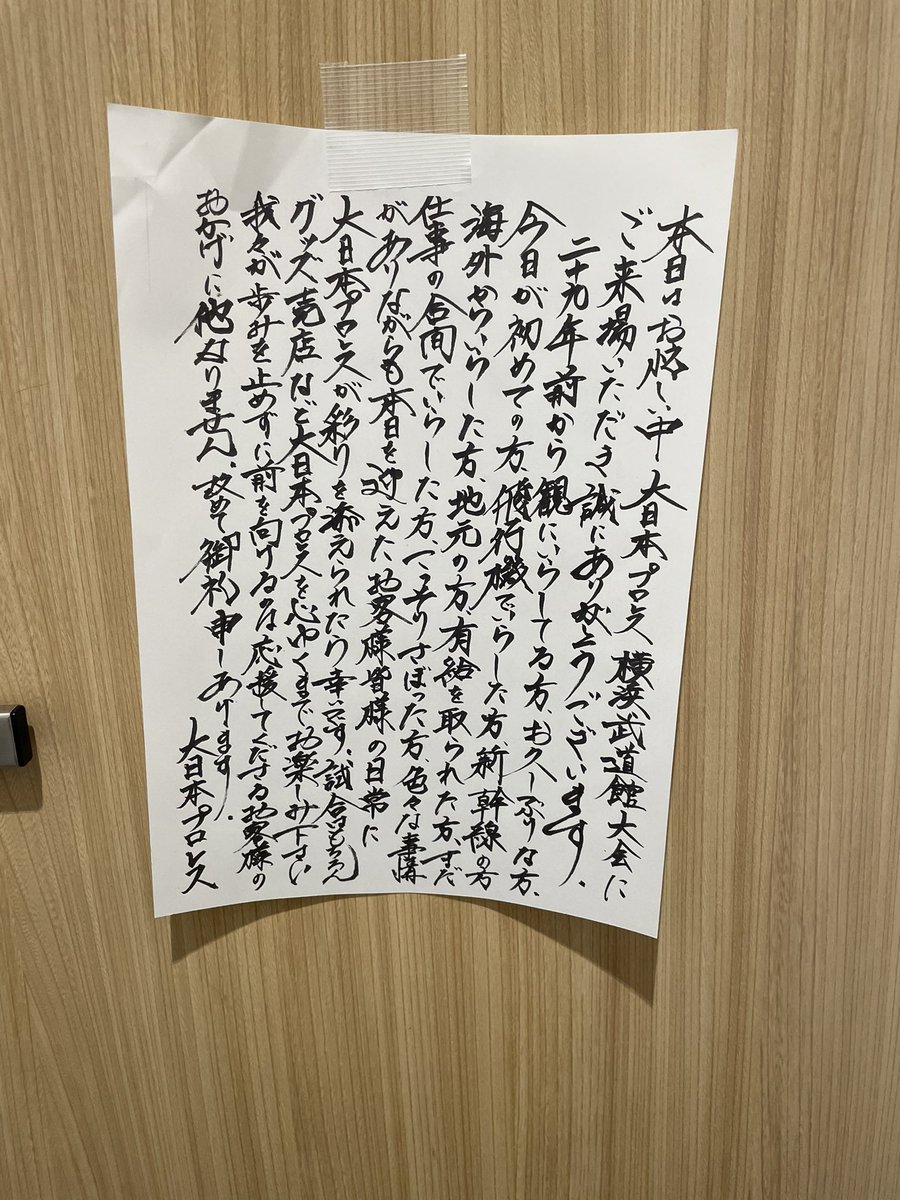 本日はお忙しい中 大日本プロレス 横浜武道館大会に
ご来場いただき誠にありがとうございます.
二十九年前から観にいらしてる方、お久しぶりな方、
今日が初めての方、飛行機でいらした方、新幹線の方
海外からいらした方、地元の方、有給を取られた方、
仕事の合間でいらした方、こっそりさぼった方、色々な事情
がありながらも本日を迎えたお客様皆様の日常に
大日本プロレスが彩りを添えられたら幸いです。試合はもちろん
グッズ売店など大日本プロレスを心ゆくまでお楽しみ下さい
我々が歩みを止めずに前を向けるのは応援してくださるお客様の
おかげに他なりません、改めて御礼申しあげます.
大日本プロレス